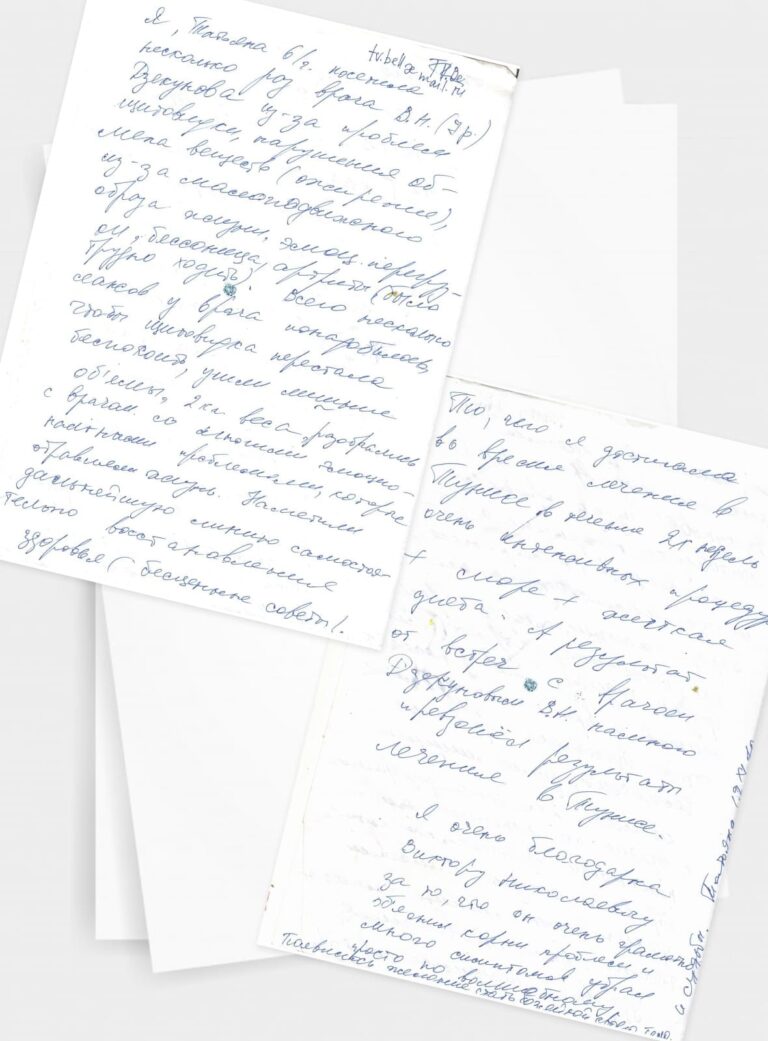 Я, Татьяна 61г. посетила
tv.bell@mail.ru
несколько раз врача В.Н. (др)
Дзекунова из-за проблем
щитовидки, нарушения об-
мена веществ (ожирение),
из-за малоподвижного
образа жизни, эмоц. перегру-
бессонница, артриты (было
трудно ходить). Всего несколько
сеансов у врача понадобилось,
чтобы щитовидка перестала
беспокоить, ушли лишние
объёмы, 2 кг. веса, разобрались
с врачом со многими эмоцио-
нальными проблемами, которые
отравляли жизнь. Наметили
дальнейшую линию самостоя-
тельно восстановления
здоровья (бесценные советы).
То, чего я достигала
во время лечения в
Тунисе в течение 2х недель
очень интенсивных процедур
+ море + жесткая
диета. А результат
от встреч с врачом
Дзекуновым В.Н. намного
превзошёл результаты
лечения в Тунисе.
Я очень благодарна
Виктору Николаевичу
за то, что он очень грамотно
объяснил корни проблем и
много симптомов убрал
просто по волшебному
Появилось желание стать
Татьяна